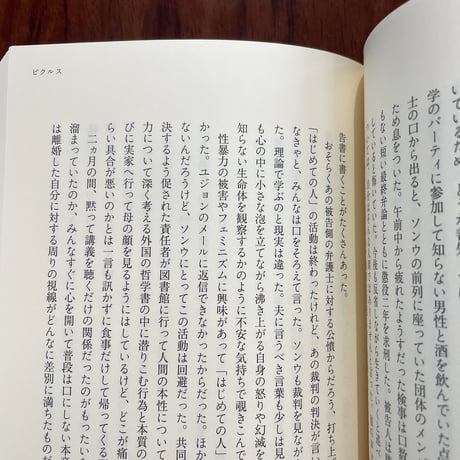 学のパーティに参加して知らない男性と酒を飲んでいた点
士の口から出ると、ソンウの前列に座っていた団体のメン
ため息をついた。午前中から疲れたようすだった検事は口数
もない短い最終弁論とともに懲役二年を求刑した。被告人は
ピクルス
告書に書くことがたくさんあった。
おそらくあの被告側の弁護士に対する公憤からだろう、打ち上
「はじめての人」の活動は終わったけれど、あの裁判の判決が言い
なきゃと、みんなは口をそろえて言った。ソンウも裁判を見ながら
た。理論で学ぶのと現実は違った。夫に言うべき言葉も少しは見
も心の中に小さな泡を立てながら沸き上がる自身の怒りや幻滅を
知らない生命体を観察するかのように不安な気持ちで覗きこんで
性暴力の被害やフェミニズムに興味があって「はじめての人」
かった。ユジョンのメールに返信できなかったからだった。ほか
ないんだろうけど、ソンウにとってこの活動は回避だった。共同
決するよう促された責任者が図書館に行って人間の本性について
力について深く考える外国の哲学書の中に潜りこむ行為と本質の
びに実家へ行って母の顔を見るようにはしているけど、どこが痛
らい具合が悪いのかとは一言も訊かずに食事だけして帰ってくる
二ヵ月の間、黙って講義を聴くだけの関係だったのがもったい
溜まっていたのか、みんなすぐに心を開いて普段は口にしない本音
は離婚した自分に対する周りの視線がどんなに差別に満ちたものだ